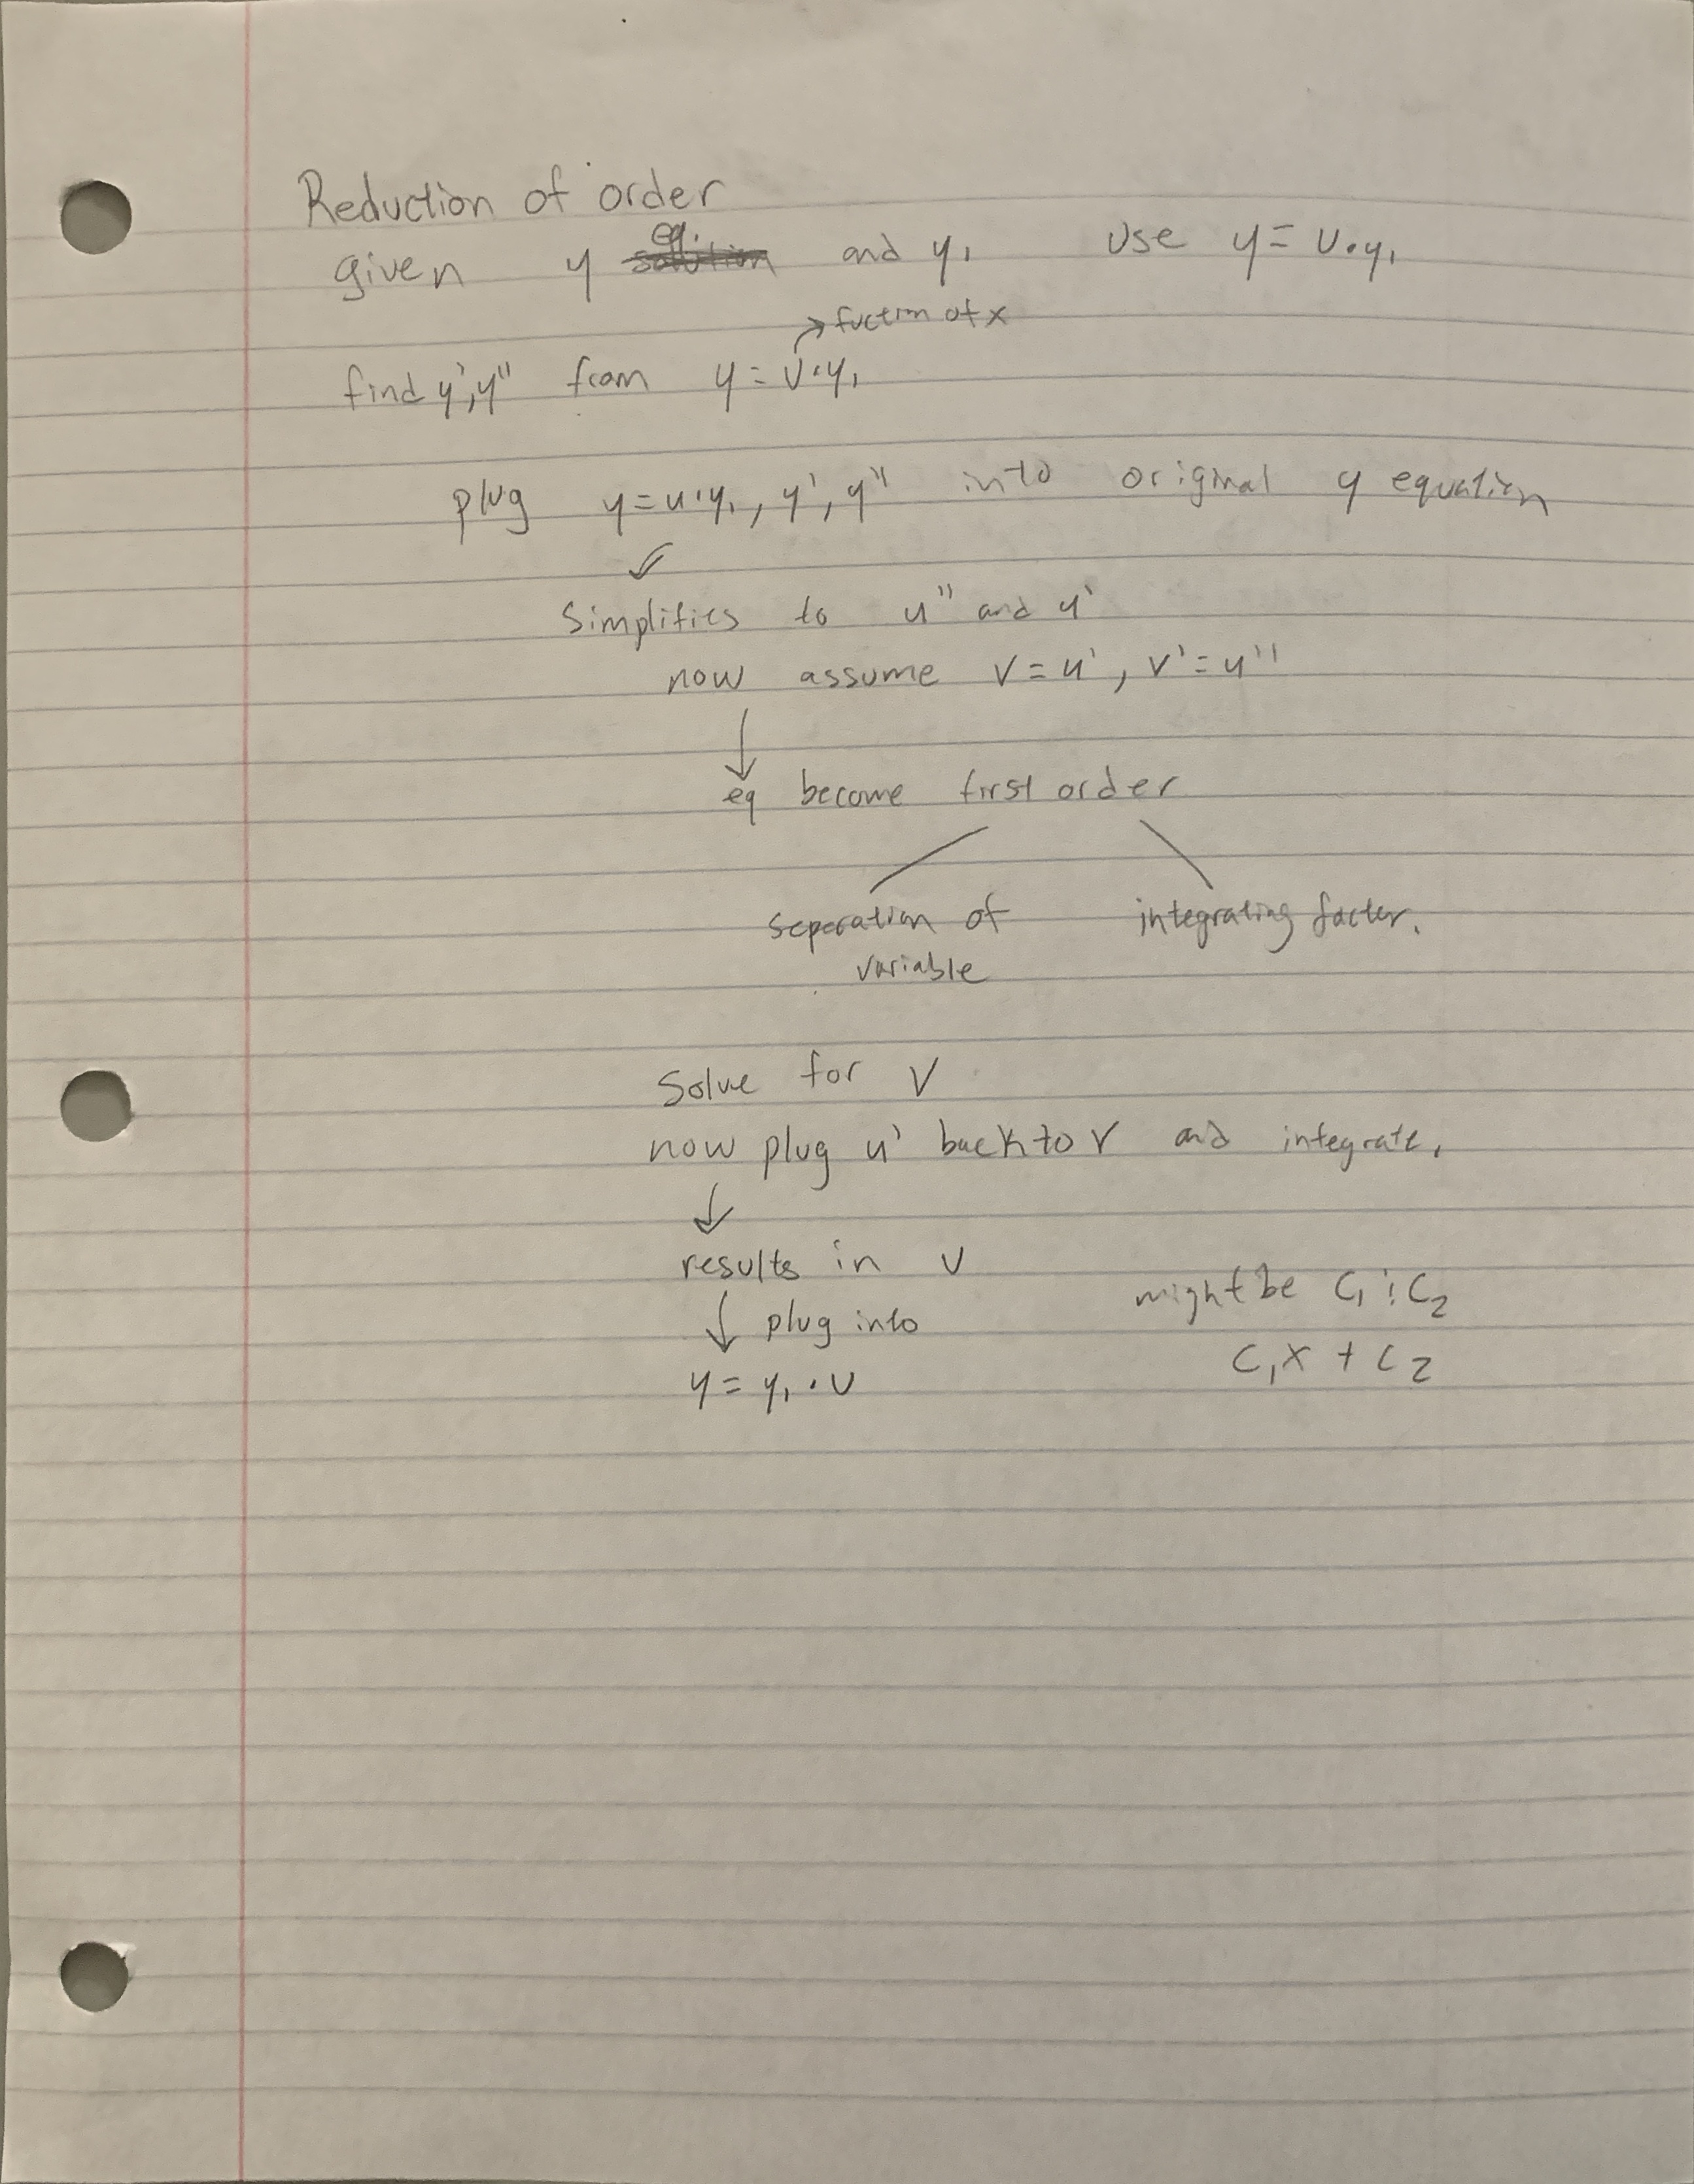 Reduction of order
given y eq. and y₁ use y = u·y₁
→ fuction of x
find y', y" from y = u·y₁
plug y = u·y₁, y', y" into original y equation
Simplifies to u" and u'
now assume v = u', v' = u"
eq become first order
seperation of integrating factor.
variable
Solve for V
now plug u' back to v and integrate.
results in u
plug into might be C₁ ; C₂
y = y₁ · u C₁x + C₂